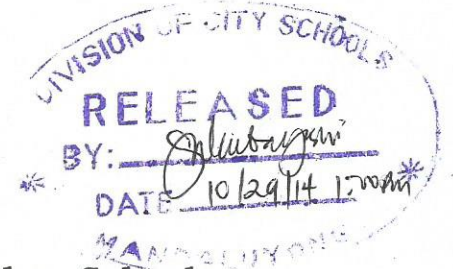 DIVISION OF CITY SCHOOLS
RELEASED
BY:
DATE 10/29/14 1:00
MANDALUYONG